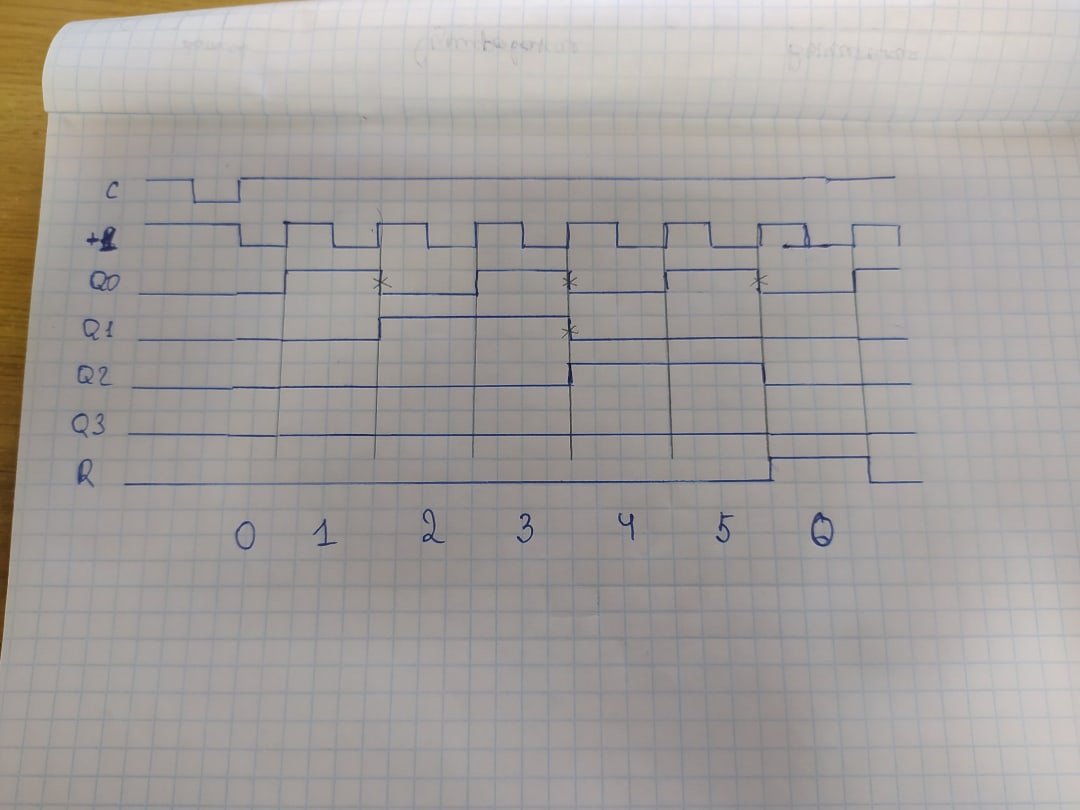 C
+1
Q0
Q1
Q2
Q3
R
0 1 2 3 4 5 0